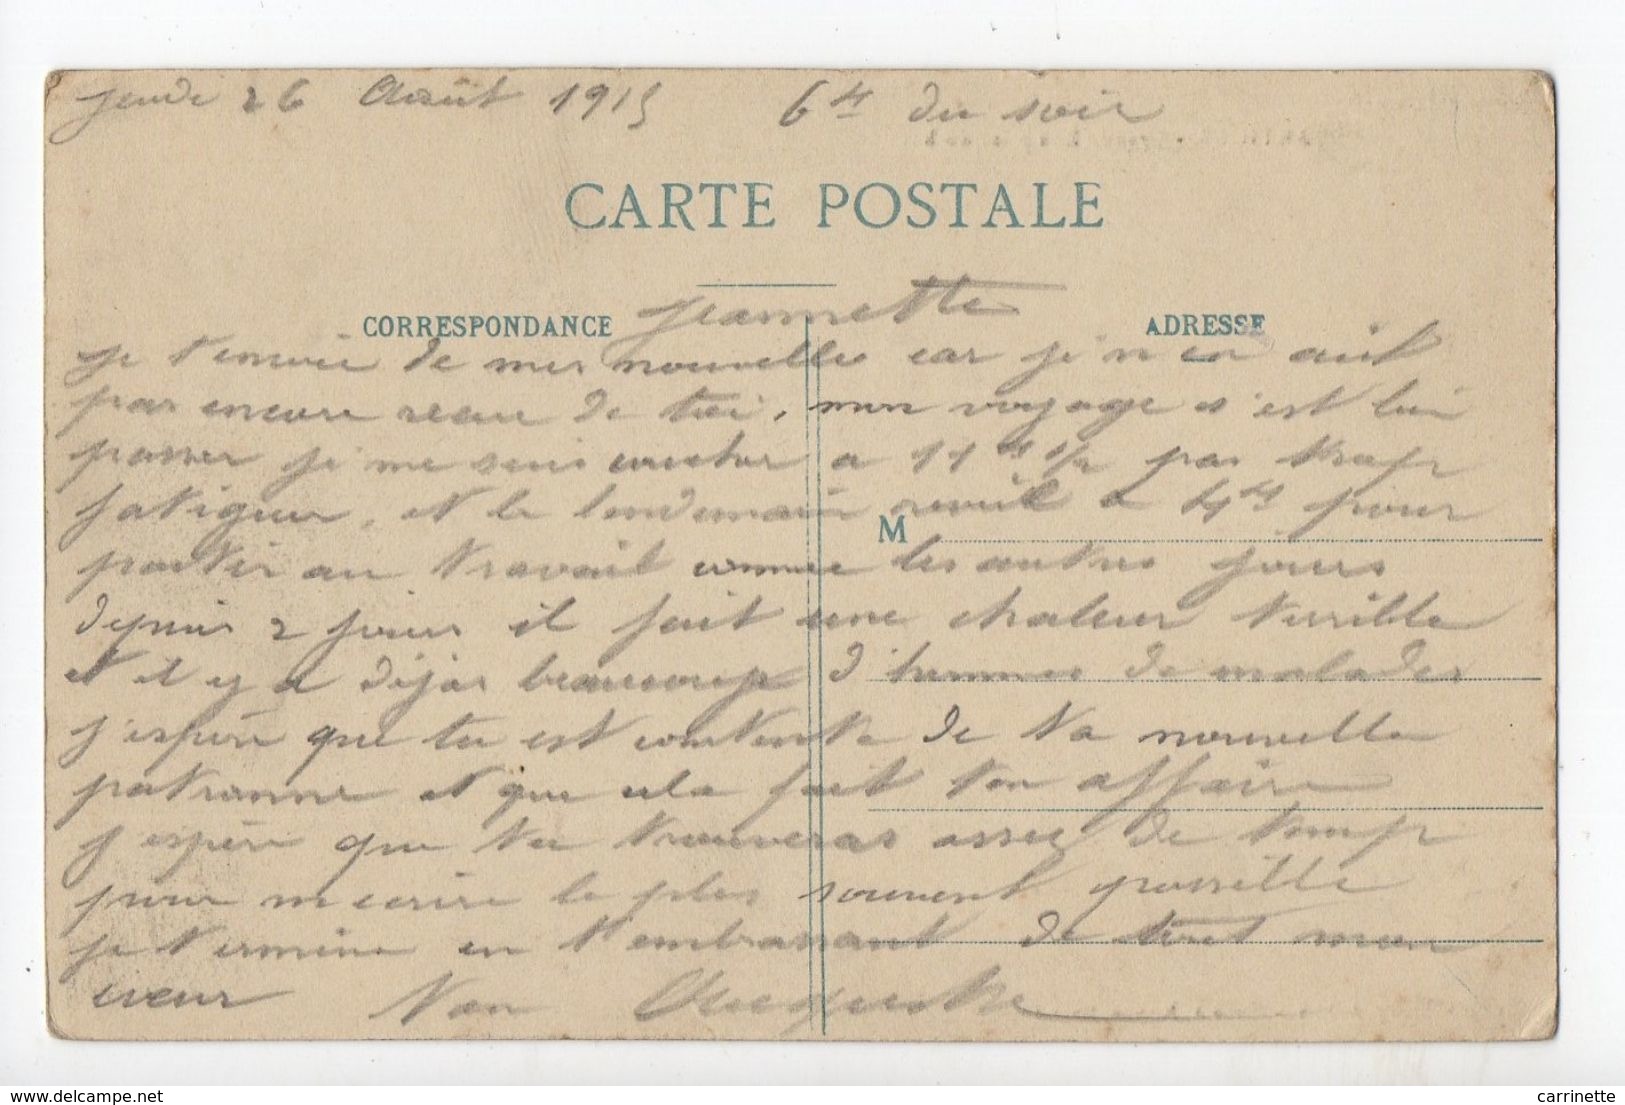 Jeudi 26 Août 1915 6 H du soir
CARTE POSTALE
CORRESPONDANCE
ADRESSE
Jeannette
je t'envoie de mes nouvelles car je n'en ait
pas encore recue de toi, mon voyage s'est bien
passer je me suis coucher a 11 H 1/2 pas trop
fatiguer, et le lendemain reveil a 4 H pour
M
partir au travail comme les autres jours
depuis 2 jours il fait une chaleur terrible
et il y a dejas beaucoup d'hommes de malades
j'espère que tu est contente de ta nouvelle
patronne et que cela fait ton affaire
j'espère que tu trouveras assez de temp
pour m'ecrire le plus souvent possible
je termine en t'embrassant de tout mon
coeur Ton Auguste
delcampe.net
carrinette